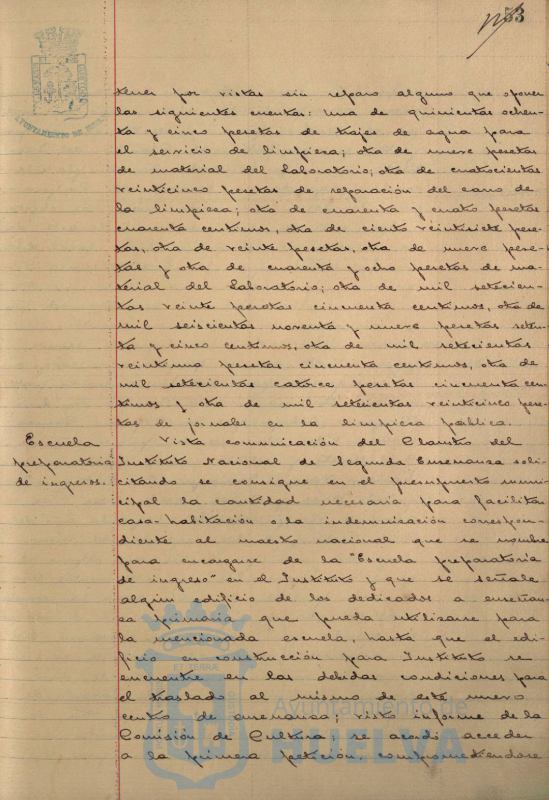 53
AYUNTAMIENTO DE HUELVA
tener por vistas sin reparo alguno que oponer
las siguientes cuentas: una de quinientas ochen-
ta y cinco pesetas de trajes de agua para
el servicio de limpieza; otra de nueve pesetas
de material del Laboratorio; otra de cuatrocientas
veinticinco pesetas de reparación del carro de
la limpieza; otra de cuarenta y cuatro pesetas
cuarenta centimos, otra de ciento veintisiete pese-
tas, otra de veinte pesetas, otra de nueve pese-
tas y otra de cuarenta y ocho pesetas de ma-
terial del Laboratorio; otra de mil setecien-
tas veinte pesetas cincuenta centimos, otra de
mil seiscientas noventa y nueve pesetas seten-
ta y cinco centimos, otra de mil setecientas
veintiuna pesetas cincuenta centimos, otra de
mil setecientas catorce pesetas cincuenta cen-
timos y otra de mil setecientas veinticinco pese-
tas de jornales en la limpieza pública.
Escuela
preparatoria
de ingresos.
Vista comunicación del Claustro del
Instituto Nacional de Segunda Enseñanza soli-
citando se consigne en el presupuesto muni-
cipal la cantidad necesaria para facilitar
casa-habitación o la indemnización correspon-
diente al maestro nacional que se nombre
para encargarse de la "Escuela preparatoria
de ingreso" en el Instituto y que se señale
algún edificio de los dedicados a enseñan-
za primaria que pueda utilizarse para
la mencionada escuela, hasta que el edi-
ficio en construcción para Instituto se
encuentre en las debidas condiciones para
el traslado al mismo de este nuevo
centro de enseñanza; visto informe de la
Comisión de Cultura; se acordó acceder
a la primera petición, comprometiendose
Ayuntamiento de
HUELVA